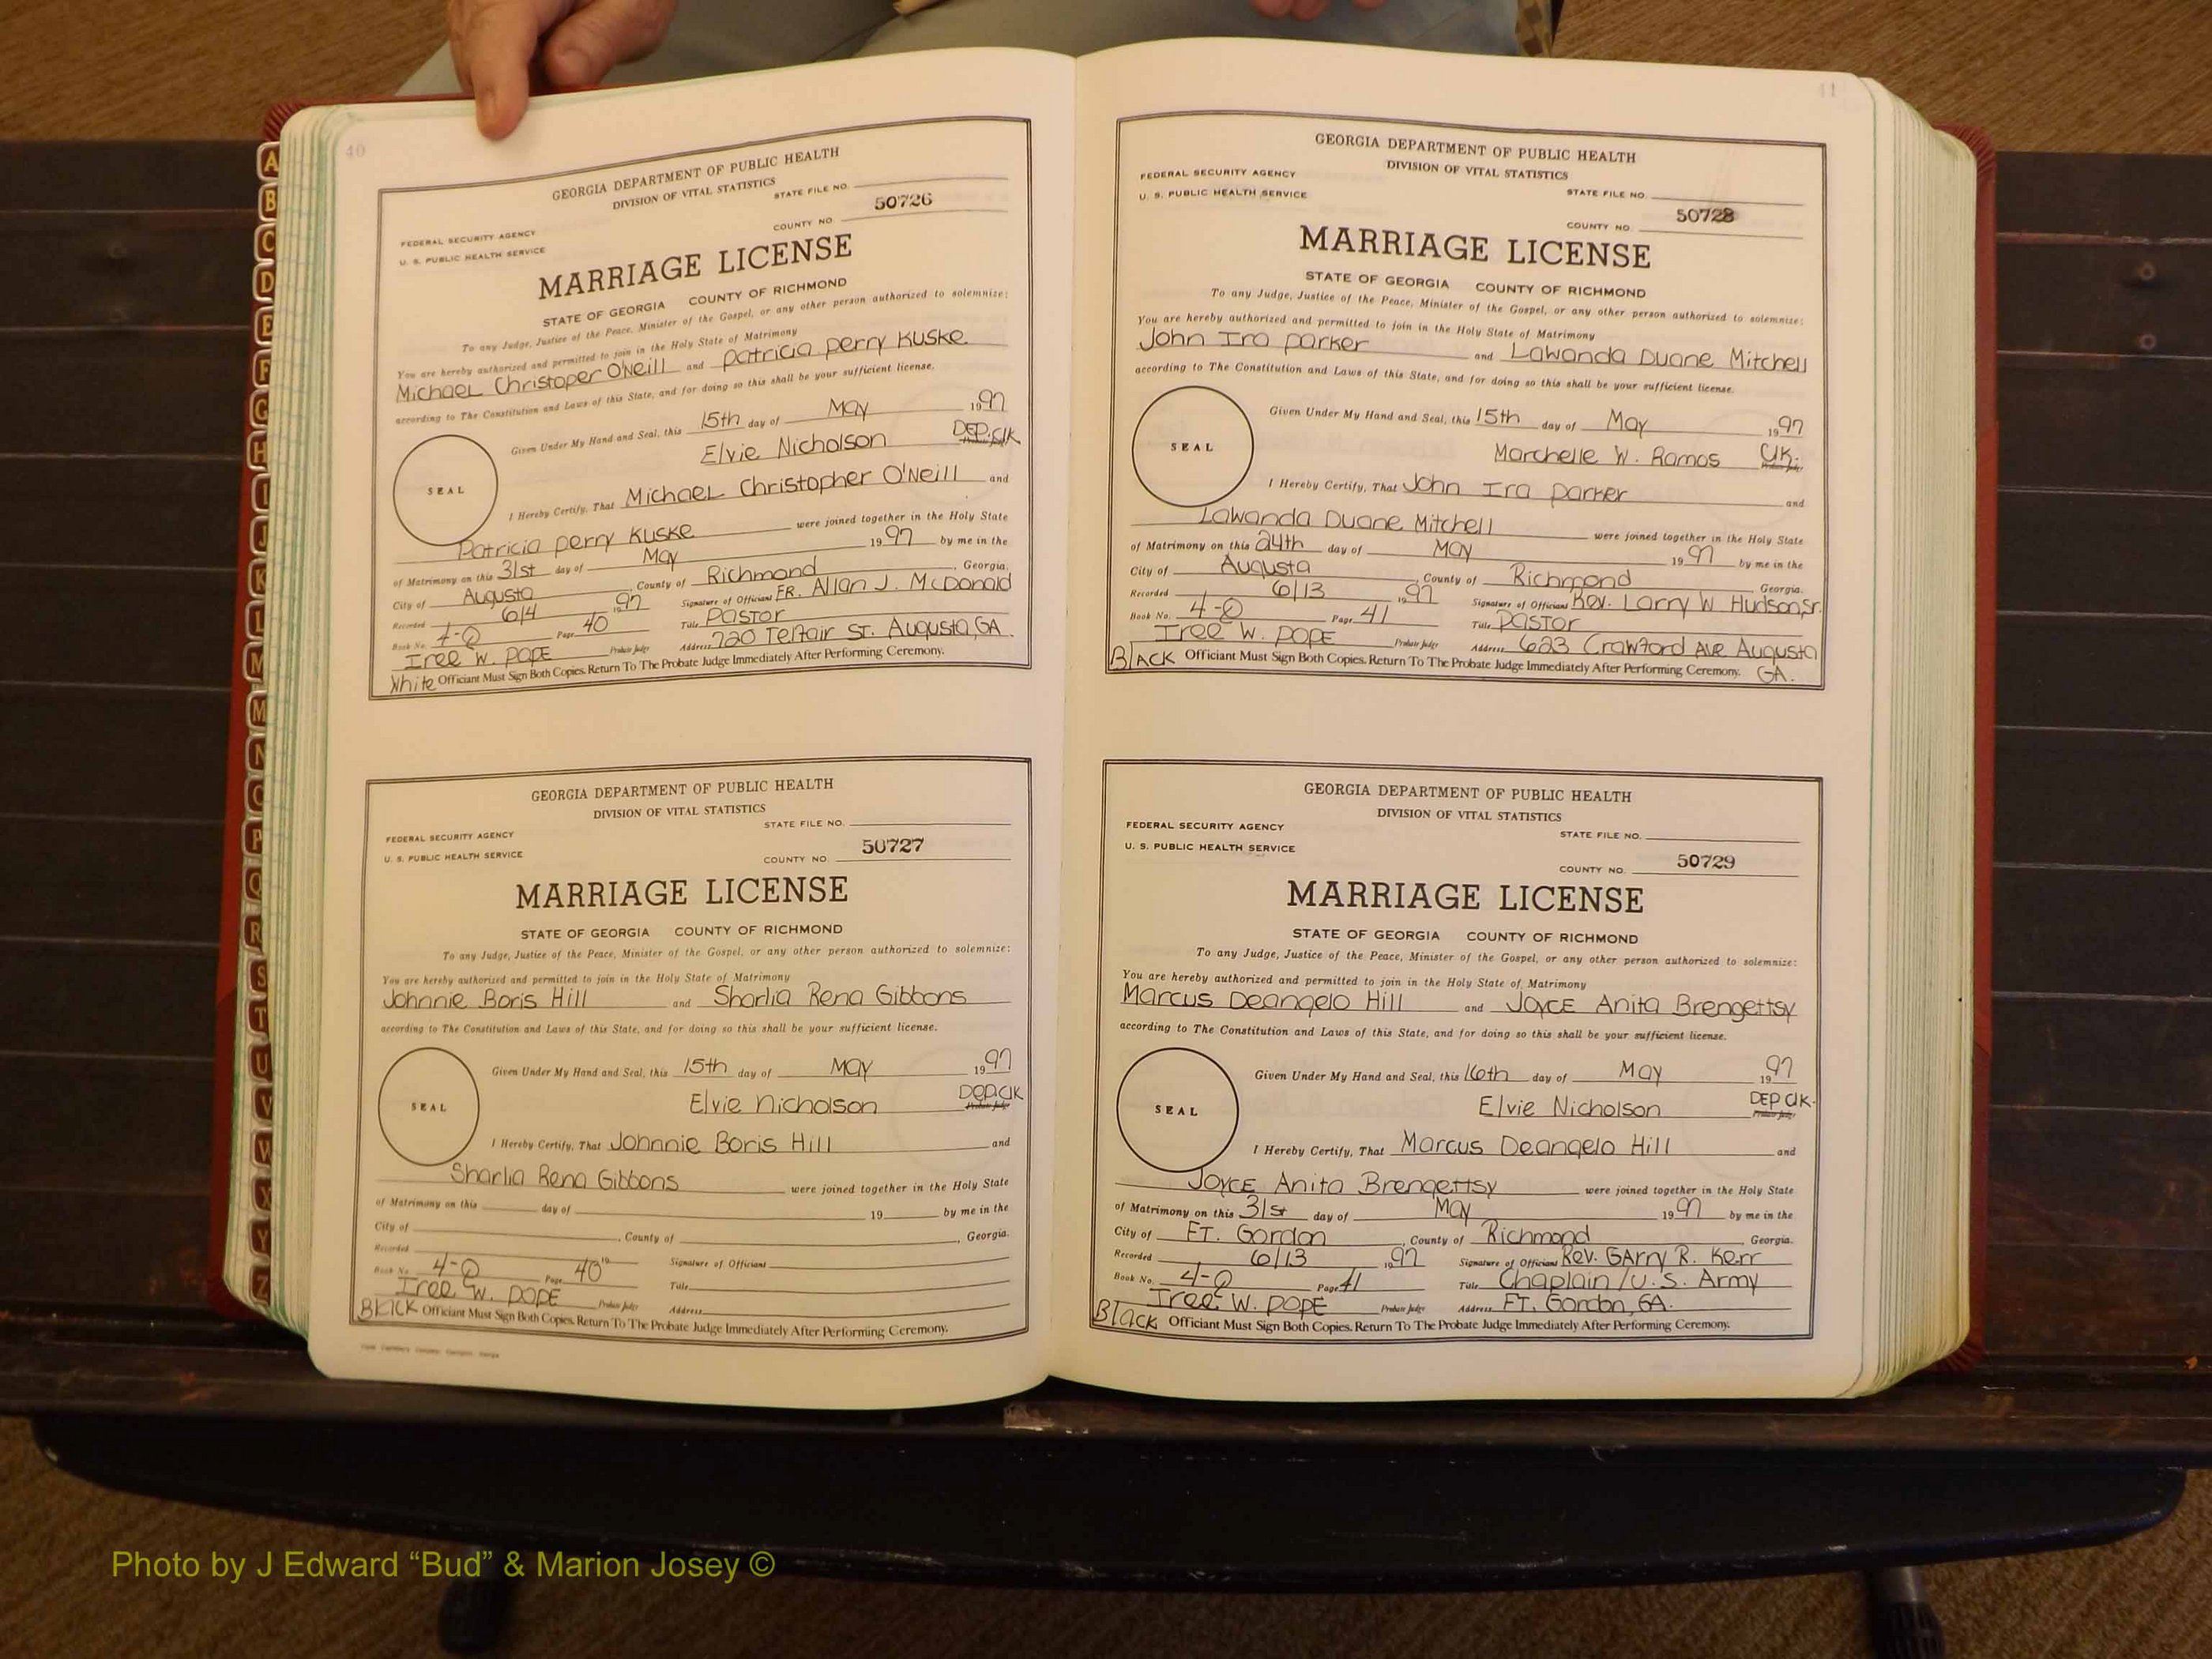 40
GEORGIA DEPARTMENT OF PUBLIC HEALTH
DIVISION OF VITAL STATISTICS
STATE FILE NO.
50726
COUNTY NO.
FEDERAL SECURITY AGENCY
U. S. PUBLIC HEALTH SERVICE
MARRIAGE LICENSE
STATE OF GEORGIA COUNTY OF RICHMOND
To any Judge, Justice of the Peace, Minister of the Gospel, or any other person authorized to solemnize:
You are hereby authorized and permitted to join in the Holy State of Matrimony
Michael Christoper O'Neill and Patricia Perry Kuske
according to The Constitution and Laws of this State, and for doing so this shall be your sufficient license.
Given Under My Hand and Seal, this 15th day of May 1997
Elvie Nicholson DEP. Clk Probate Judge
SEAL
I Hereby Certify, That Michael Christopher O'Neill and
Patricia Perry Kuske were joined together in the Holy State
of Matrimony on this 31st day of May 1997 by me in the
City of Augusta, County of Richmond, Georgia.
Recorded 6/4 1997 Signature of Officiant FR. Allan J. McDonald
Book No. 4-Q Page 40 Title Pastor
Iree W. Pope Probate Judge Address 720 Telfair St. Augusta, GA.
White Officiant Must Sign Both Copies. Return To The Probate Judge Immediately After Performing Ceremony.
GEORGIA DEPARTMENT OF PUBLIC HEALTH
DIVISION OF VITAL STATISTICS
STATE FILE NO.
FEDERAL SECURITY AGENCY
U. S. PUBLIC HEALTH SERVICE
COUNTY NO. 50727
MARRIAGE LICENSE
STATE OF GEORGIA COUNTY OF RICHMOND
To any Judge, Justice of the Peace, Minister of the Gospel, or any other person authorized to solemnize:
You are hereby authorized and permitted to join in the Holy State of Matrimony
Johnnie Boris Hill and Sharlia Rena Gibbons
according to The Constitution and Laws of this State, and for doing so this shall be your sufficient license.
Given Under My Hand and Seal, this 15th day of May 1997
Elvie Nicholson Dep. Clk Probate Judge
SEAL
I Hereby Certify, That Johnnie Boris Hill and
Sharlia Rena Gibbons were joined together in the Holy State
of Matrimony on this day of 19 by me in the
City of , County of , Georgia.
Recorded 19 Signature of Officiant
Book No. 4-Q Page 40 Title
Iree W. Pope Probate Judge Address
Black Officiant Must Sign Both Copies. Return To The Probate Judge Immediately After Performing Ceremony.
41
GEORGIA DEPARTMENT OF PUBLIC HEALTH
DIVISION OF VITAL STATISTICS
FEDERAL SECURITY AGENCY
U. S. PUBLIC HEALTH SERVICE
STATE FILE NO.
COUNTY NO. 50728
MARRIAGE LICENSE
STATE OF GEORGIA COUNTY OF RICHMOND
To any Judge, Justice of the Peace, Minister of the Gospel, or any other person authorized to solemnize:
You are hereby authorized and permitted to join in the Holy State of Matrimony
John Ira Parker and Lawanda Duane Mitchell
according to The Constitution and Laws of this State, and for doing so this shall be your sufficient license.
Given Under My Hand and Seal, this 15th day of May 1997
Marchelle W. Ramos Clk. Probate Judge
SEAL
I Hereby Certify, That John Ira Parker and
Lawanda Duane Mitchell were joined together in the Holy State
of Matrimony on this 24th day of May 1997 by me in the
City of Augusta, County of Richmond, Georgia.
Recorded 6/13 1997 Signature of Officiant Rev. Larry W Hudson, Sr.
Book No. 4-Q Page 41 Title Pastor
Iree W. Pope Probate Judge Address 623 Crawford Ave Augusta
Black Officiant Must Sign Both Copies. Return To The Probate Judge Immediately After Performing Ceremony. GA.
GEORGIA DEPARTMENT OF PUBLIC HEALTH
DIVISION OF VITAL STATISTICS
FEDERAL SECURITY AGENCY
STATE FILE NO.
U. S. PUBLIC HEALTH SERVICE
COUNTY NO. 50729
MARRIAGE LICENSE
STATE OF GEORGIA COUNTY OF RICHMOND
To any Judge, Justice of the Peace, Minister of the Gospel, or any other person authorized to solemnize:
You are hereby authorized and permitted to join in the Holy State of Matrimony
Marcus Deangelo Hill and Joyce Anita Brengettsy
according to The Constitution and Laws of this State, and for doing so this shall be your sufficient license.
Given Under My Hand and Seal, this 16th day of May 1997
Elvie Nicholson DEP Clk. Probate Judge
SEAL
I Hereby Certify, That Marcus Deangelo Hill and
Joyce Anita Brengettsy were joined together in the Holy State
of Matrimony on this 31st day of May 1997 by me in the
City of FT. Gordon, County of Richmond, Georgia.
Recorded 6/13 1997 Signature of Officiant Rev. Garry R. Kerr
Book No. 4-Q Page 41 Title Chaplain / U.S. Army
Iree W. Pope Probate Judge Address FT. Gordon, GA.
Black Officiant Must Sign Both Copies. Return To The Probate Judge Immediately After Performing Ceremony.
A
B
C
D
E
F
G
H
I
J
K
L
M
M
N
O
P
Q
R
S
T
U
V
W
X
Y
Z
Photo by J Edward “Bud” & Marion Josey ©